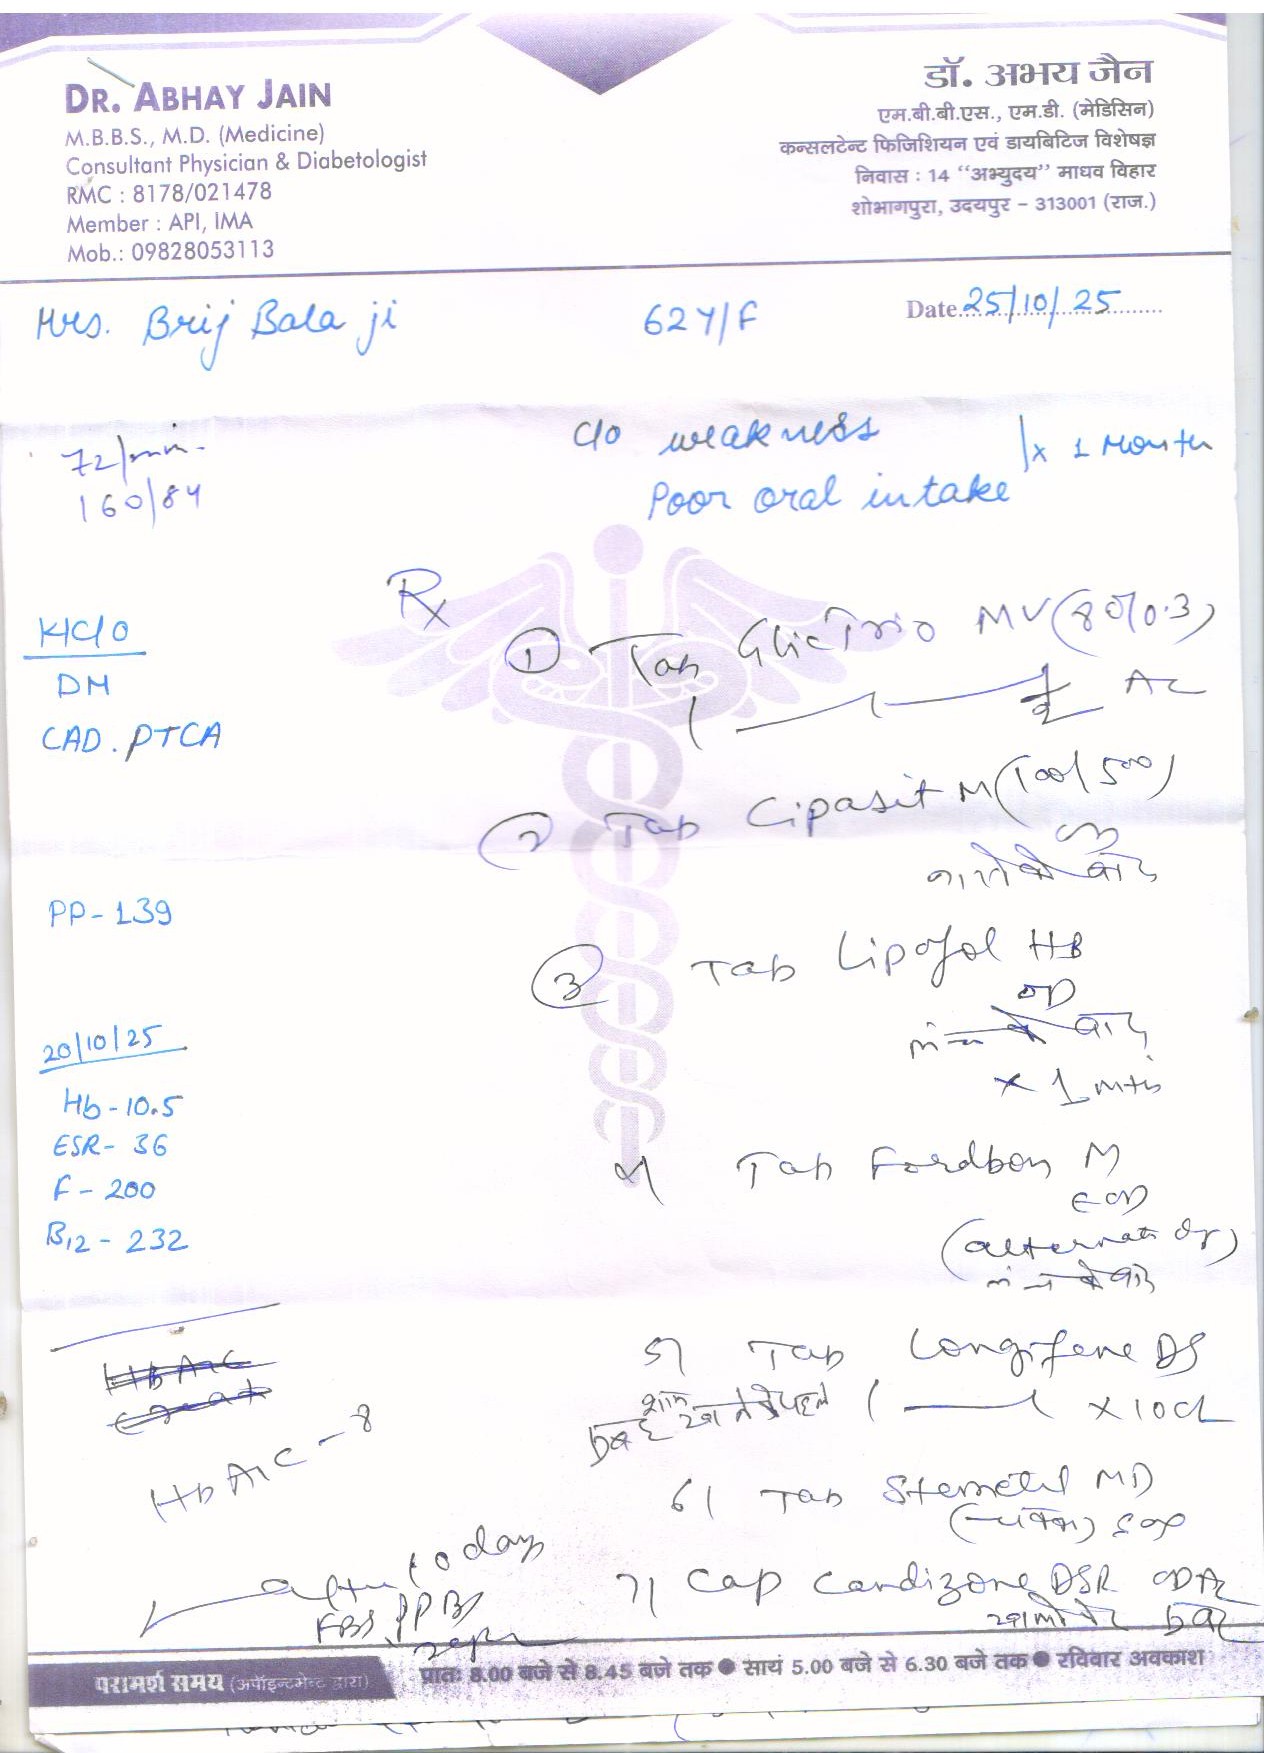 DR. ABHAY JAIN
M.B.B.S., M.D. (Medicine)
Consultant Physician & Diabetologist
RMC : 8178/021478
Member : API, IMA
Mob.: 09828053113
डॉ. अभय जैन
एम.बी.बी.एस., एम.डी. (मेडिसिन)
कन्सलटेन्ट फिजिशियन एवं डायबिटिज विशेषज्ञ
निवास : 14 "अभ्युदय" माधव विहार
शोभागपुरा, उदयपुर - 313001 (राज.)
Mrs. Brij Bala ji 62Y/F Date 25/10/25
72/min.
160/84
C/o weakness
Poor oral intake x 1 Month
K/C/O
DM
CAD. PTCA
PP-139
20/10/25
Hb-10.5
ESR- 36
F-200
B12-232
HbA1C-8
after 10 days
FBS, PPBS
Rx
① Tab MV (80/0.3)
AC
② Tab Cipasit M (100/500)
OD
③ Tab Lipofol HB
OD
x 1 mth
4) Tab M
EOD
(alternate day)
5) Tab DS
x 10d
6) Tab Stemetil MD
SOS
7) Cap DSR OD AC
परामर्श समय (अपॉइन्टमेन्ट द्वारा)
प्रातः 8.00 बजे से 8.45 बजे तक ● सायं 5.00 बजे से 6.30 बजे तक ● रविवार अवकाश